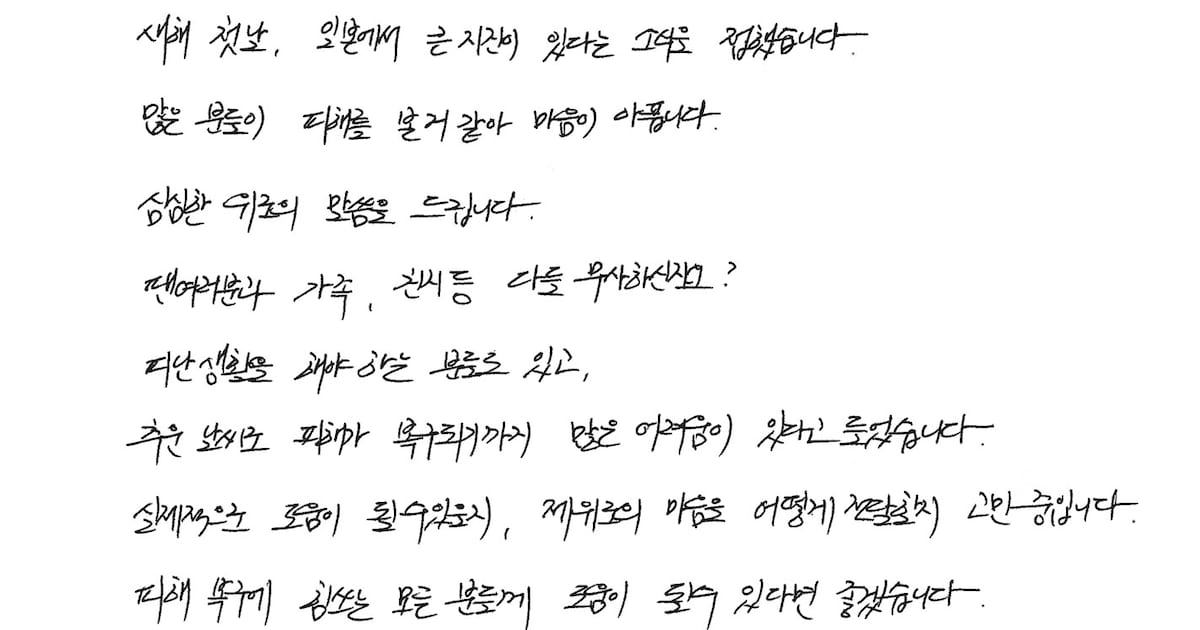 새해 첫날, 일본에서 큰 지진이 있다는 소식을 접했습니다.
많은 분들이 피해를 본거 같아 마음이 아픕니다.
심심한 위로의 말씀을 드립니다.
팬여러분과 가족, 친지등 다들 무사하신지요?
피난생활을 해야 하는 분들도 있고,
추운 날씨로 피해가 복구되기까지 많은 어려움이 있다고 들었습니다.
실제적으로 도움이 될수있을지, 제 위로의 마음을 어떻게 전달할지 고민중입니다.
피해 복구에 힘쓰는 모든 분들께 도움이 될수 있다면 좋겠습니다.